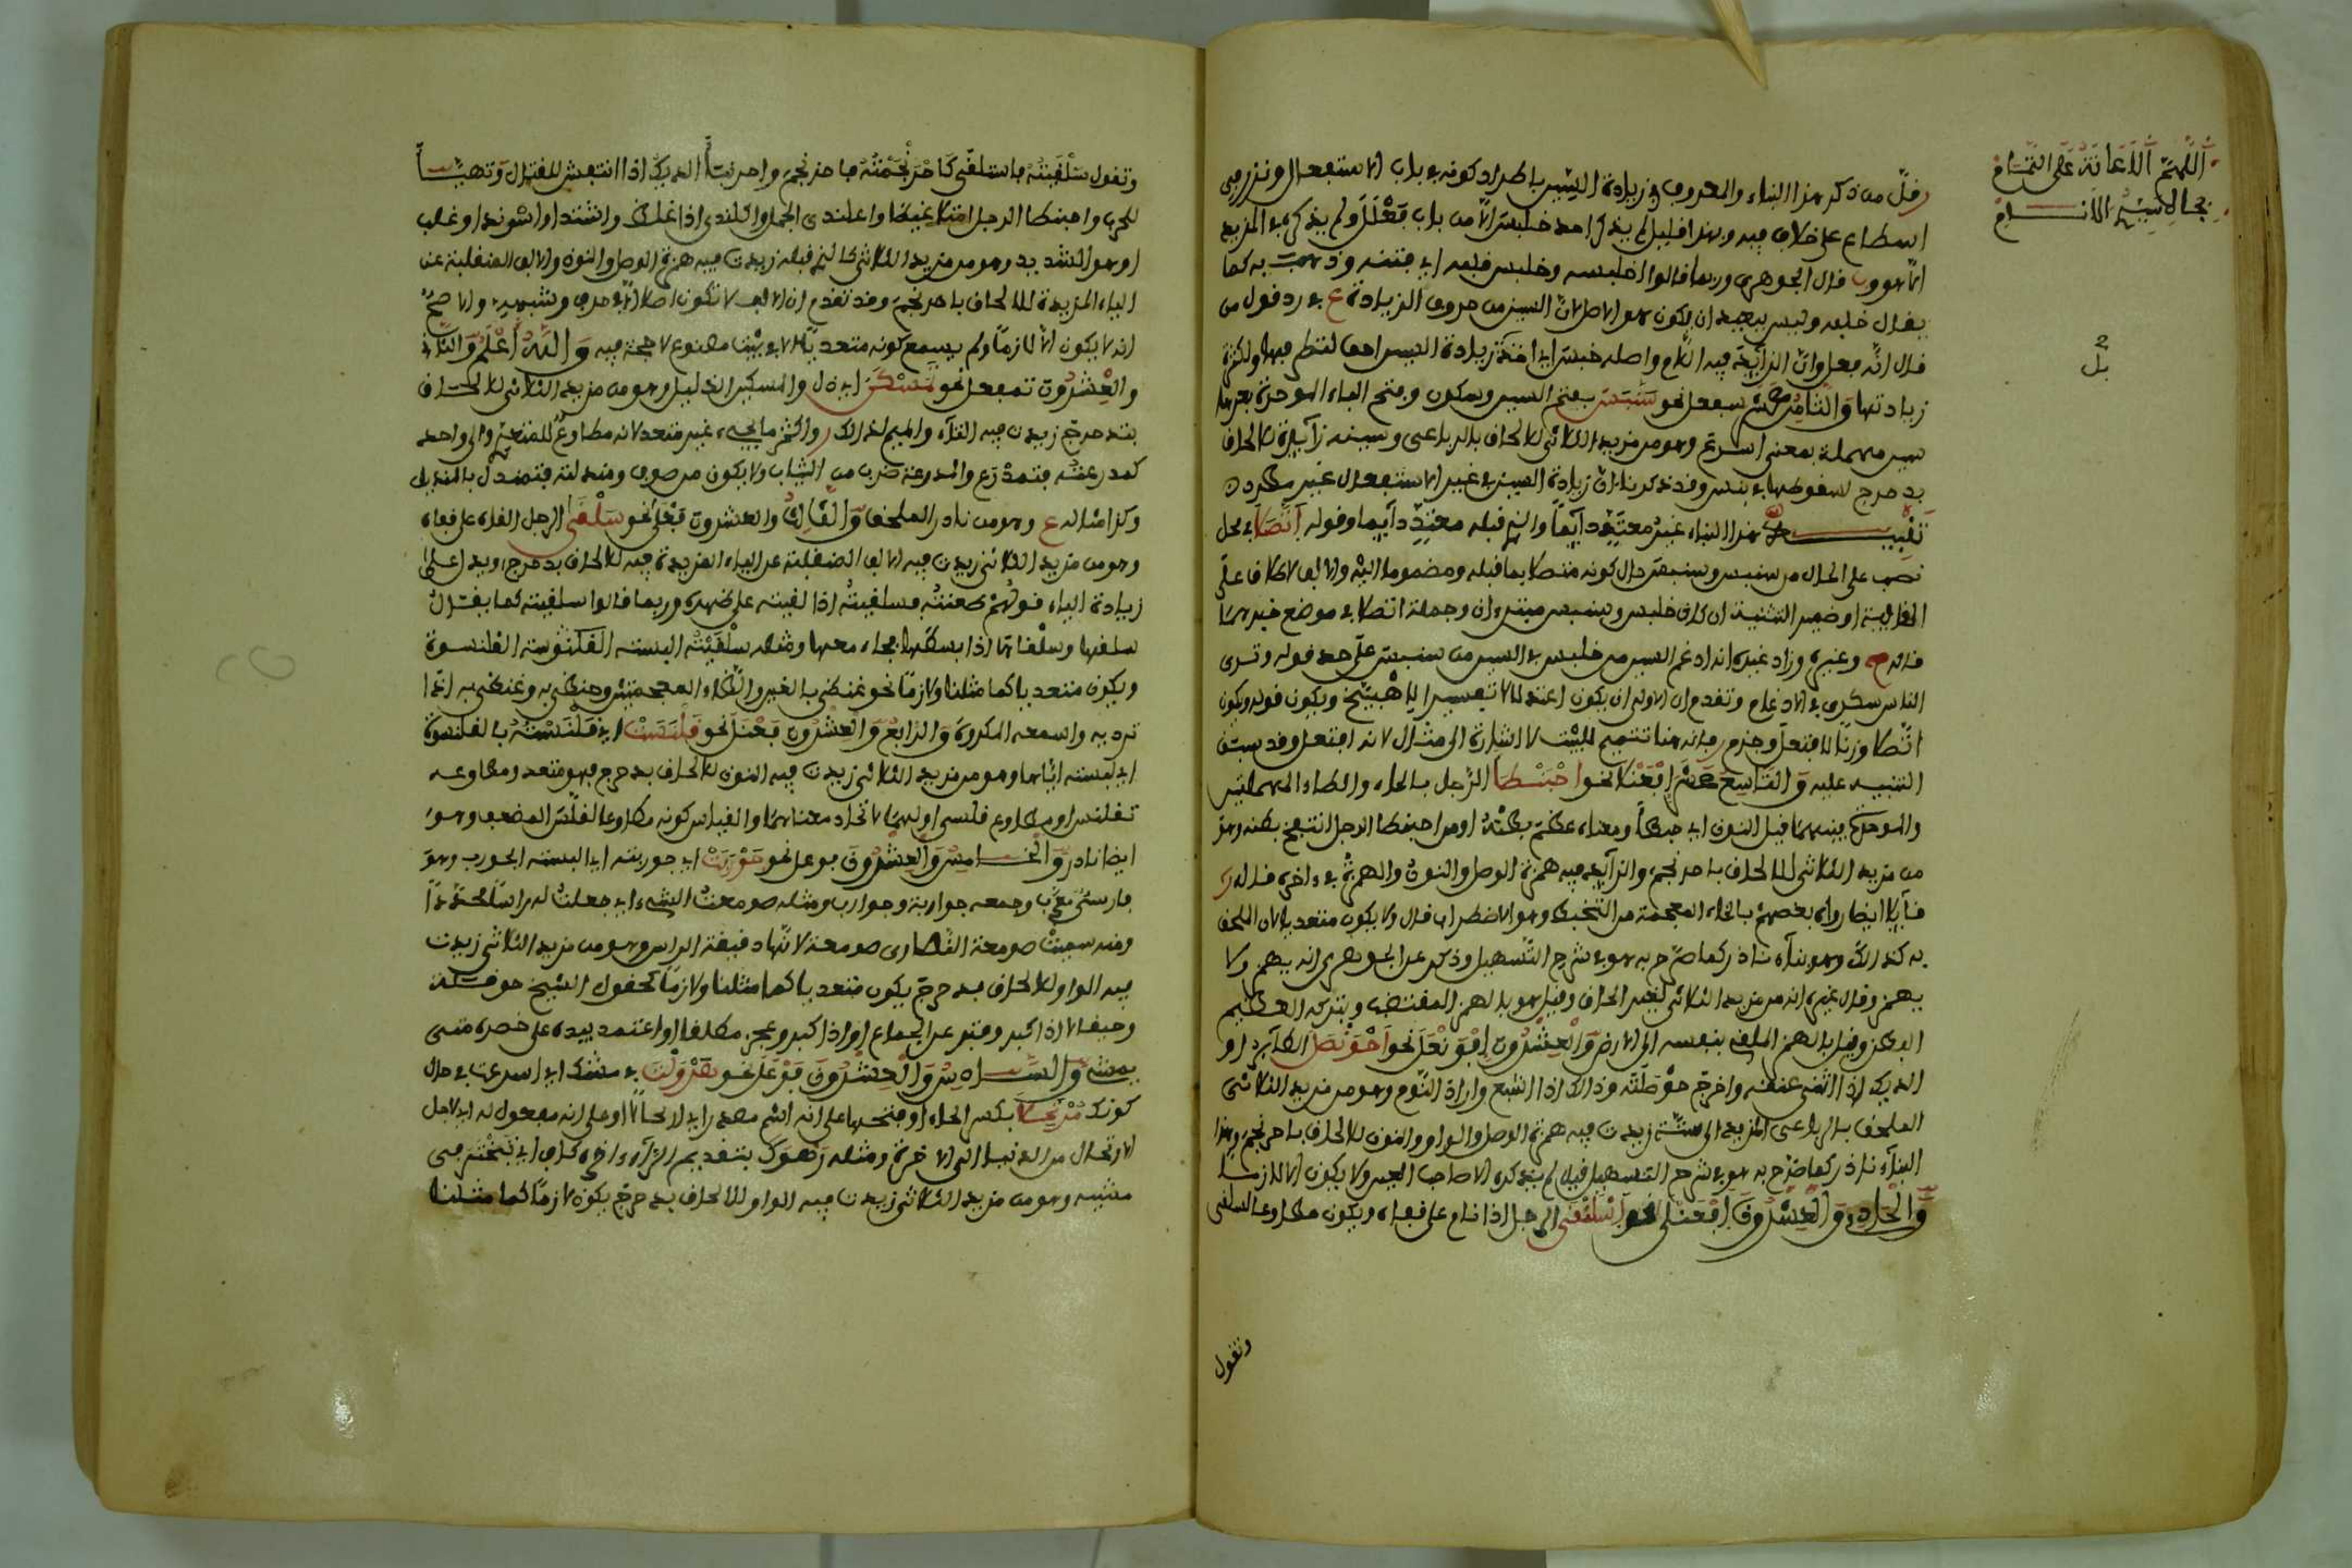 اللهم الاعانة على التمام
بجاه سيد الانام
وقل من ذكر هذا البناء والمعروف في زيادة السين باطراد كونه في باب الاستفعال ونزر في
اسطاع على خلاف فيه وبهذا قليل لم يذكر احد خلبس الا من باب فعلل ولم يذكر في المزيد
قال الجوهري وربما قالوا خلبسه وخلبس قلبه اي فتنه وذهب به كما
يقال خلبه وليس يبعد ان يكون هو الاصل لان السين من حروف الزيادة ع في رد قول من
قال انه فعل وان الزائد فيه اللام واصله خبس
زيادتها والثامن عشر سفعل نحو سنبس بفتح السين وسكون وفتح الباء الموحدة بعدها
سين مهملة بمعنى اسرع وهو من مزيد الثلاثي للالحاق بالرباعي وسينه زائدة للالحاق
بدحرج لسقوطها في نبس وقد ذكرنا ان زيادة السين في غير الاستفعال غير مطرد
تنبيه هذا البناء غير متعد دائما والذي قبله متعد دائما وقوله اتصلا في محل
نصب على الحال من سنبس وسنبس حال كونه متصلا بما قبله ومضموما اليه والالف للاطلاق على
الحالية او ضمير التثنية ان كان خلبس وسنبس مبتدءان وجملة اتصلا في موضع خبرهما
قاله ح وغيره وزاد غيره انه ادغم السين من خلبس في السين من سنبس على حد قوله وترى
الناس سكرى في الادغام وتقدم ان الاولى ان يكون
اتصلا وزنا لافتعل وجزم فانه هنا تتميم للبيت لا اشارة الى مثال لانه افتعل وقد سبق
التنبيه عليه والتاسع عشر افعنلا نحو احبنطا الرجل بالحاء والطاء المهملتين
والموحدة بينهما قبل النون اي حبطا ومعناه عظم بطنه او من احبنطا الرجل انتفخ بطنه وهو
من مزيد الثلاثي للالحاق باحرنجم والزائد فيه همزة الوصل والنون والهمزة في ءاخره قال
ايضا رواه بعضهم بالخاء المعجمة من التخبط وهو الاضطراب قال ولا يكون متعديا لان الملحق
به كذلك وهو بناء نادر كما صرح به هو في شرح التسهيل وذكر عن الجوهري انه يهمز ولا
يهمز وقال غيره انه من مزيد الثلاثي لغير الحاق وقيل هو بالهمز المغتضب وبتركه العظيم
البطن وقيل بالهمز الملقي بنفسه الى الارض والعشرون افونعل نحو احونصل الطائر او
الديك اذا اثنى عنقه واخرج حوصلته وذلك اذا شبع واراد النوم وهو من مزيد الثلاثي
الملحق بالرباعي المزيد الى ستة زيدت فيه همزة الوصل والواو والنون للالحاق باحرنجم وهذا
البناء نادر كما صرح به هو في شرح التسهيل قيل لم يذكره الا صاحب العين ولا يكون الا لازما
والحادي والعشرون افعنلى نحو اسلنقى الرجل اذا نام على قفاه ويكون مطاوعا لسلقى
وتقول
وتقول سلقيته فاسلنقى كما حرجمته فاحرنجم واحرنبا الديك اذا انتفش للقتال وتهيا
للحرب واحبنطا الرجل امتلا غيظا واعلندى الجمل واكلندى اذا غلظ واشتد او غلب
وهو الشديد وهو من مزيد الثلاثي كالذي قبله زيدت فيه همزة الوصل والنون والالف المنقلبة عن
الياء المزيدة للالحاق باحرنجم وقد تقدم ان الالف لا تكون اصلا الا في حرف وشبهه والاصح
انه لا يكون الا لازما ولم يسمع كونه متعديا الا في بيت مصنوع لا حجة فيه والله اعلم والثاني
والعشرون تمفعل نحو تمسكن اي ذل والمسكين الذليل وهو من مزيد الثلاثي للالحاق
بتدحرج زيدت فيه التاء والميم لذلك واكثر ما يجيء غير متعد لانه مطاوع للمتعدي الى واحد
كمدرعته فتمدرع والمدرعة ضرب من الثياب ولا يكون من صوف ومندلته فتمندل بالمنديل
وكذا مثاله ع وهو من نادر الملحق والثالث والعشرون فعلى نحو سلقى الرجل القاه على قفاه
وهو من مزيد الثلاثي زيدت فيه الالف المنقلبة عن الياء المزيدة فيه للالحاق بدحرج ويدل على
زيادة الياء قولهم طعنته فسلقيته اذا القيته على ظهره وربما قالوا سلقيته كما يقال
سلقها وسلقاها اذا بسطها فجامعها ومثله سلقيته البسته القلنسوة
ويكون متعديا كما مثلنا ولازما نحو غنظى بالغين والظاء المعجمتين وحنظى به وعنظى به اذا
ندد به واسمعه المكروه والرابع والعشرون فعنل نحو قلنست اي قلنسته بالقلنسوة
اي البسته اياها وهو من مزيد الثلاثي زيدت فيه النون للالحاق بدحرج فهو متعد ومطاوعه
تقلنس او مطاوع قلسى اولهما لاتحاد معناهما والقياس كونه مطاوعا لقلس المضعف وهو
ايضا نادر والخامس والعشرون فوعل نحو جوربت اي جوربته اي البسته الجورب وهو
فارسي معرب وجمعه جواربة وجوارب ومثله صومعت الشيء اي جعلت له راسا محددا
ومنه سميت صومعة النصارى صومعة لانها دقيقة الراس وهو من مزيد الثلاثي زيدت
فيه الواو للالحاق بدحرج يكون متعديا كما مثلنا ولازما كحوقل الشيخ حوقلة
وحيقالا اذا كبر وفتر عن الجماع او اذا كبر وعجز مطلقا او اعتمد بيديه على خصره متى
يمشي والسادس والعشرون فعول نحو هرولت في مشيك اي اسرعت في حال
كونك مرتحلا بكسر الحاء او فتحها على انه اسم مصدر اي لارتحالا او على انه مفعول له اي لاجل
الارتحال من الدنيا الى الاخرة ومثله رهوك بتقديم الراء وءاخره كاف اي تبختر في
مشيه وهو من مزيد الثلاثي زيدت فيه الواو للالحاق بدحرج يكون لازما كما مثلنا